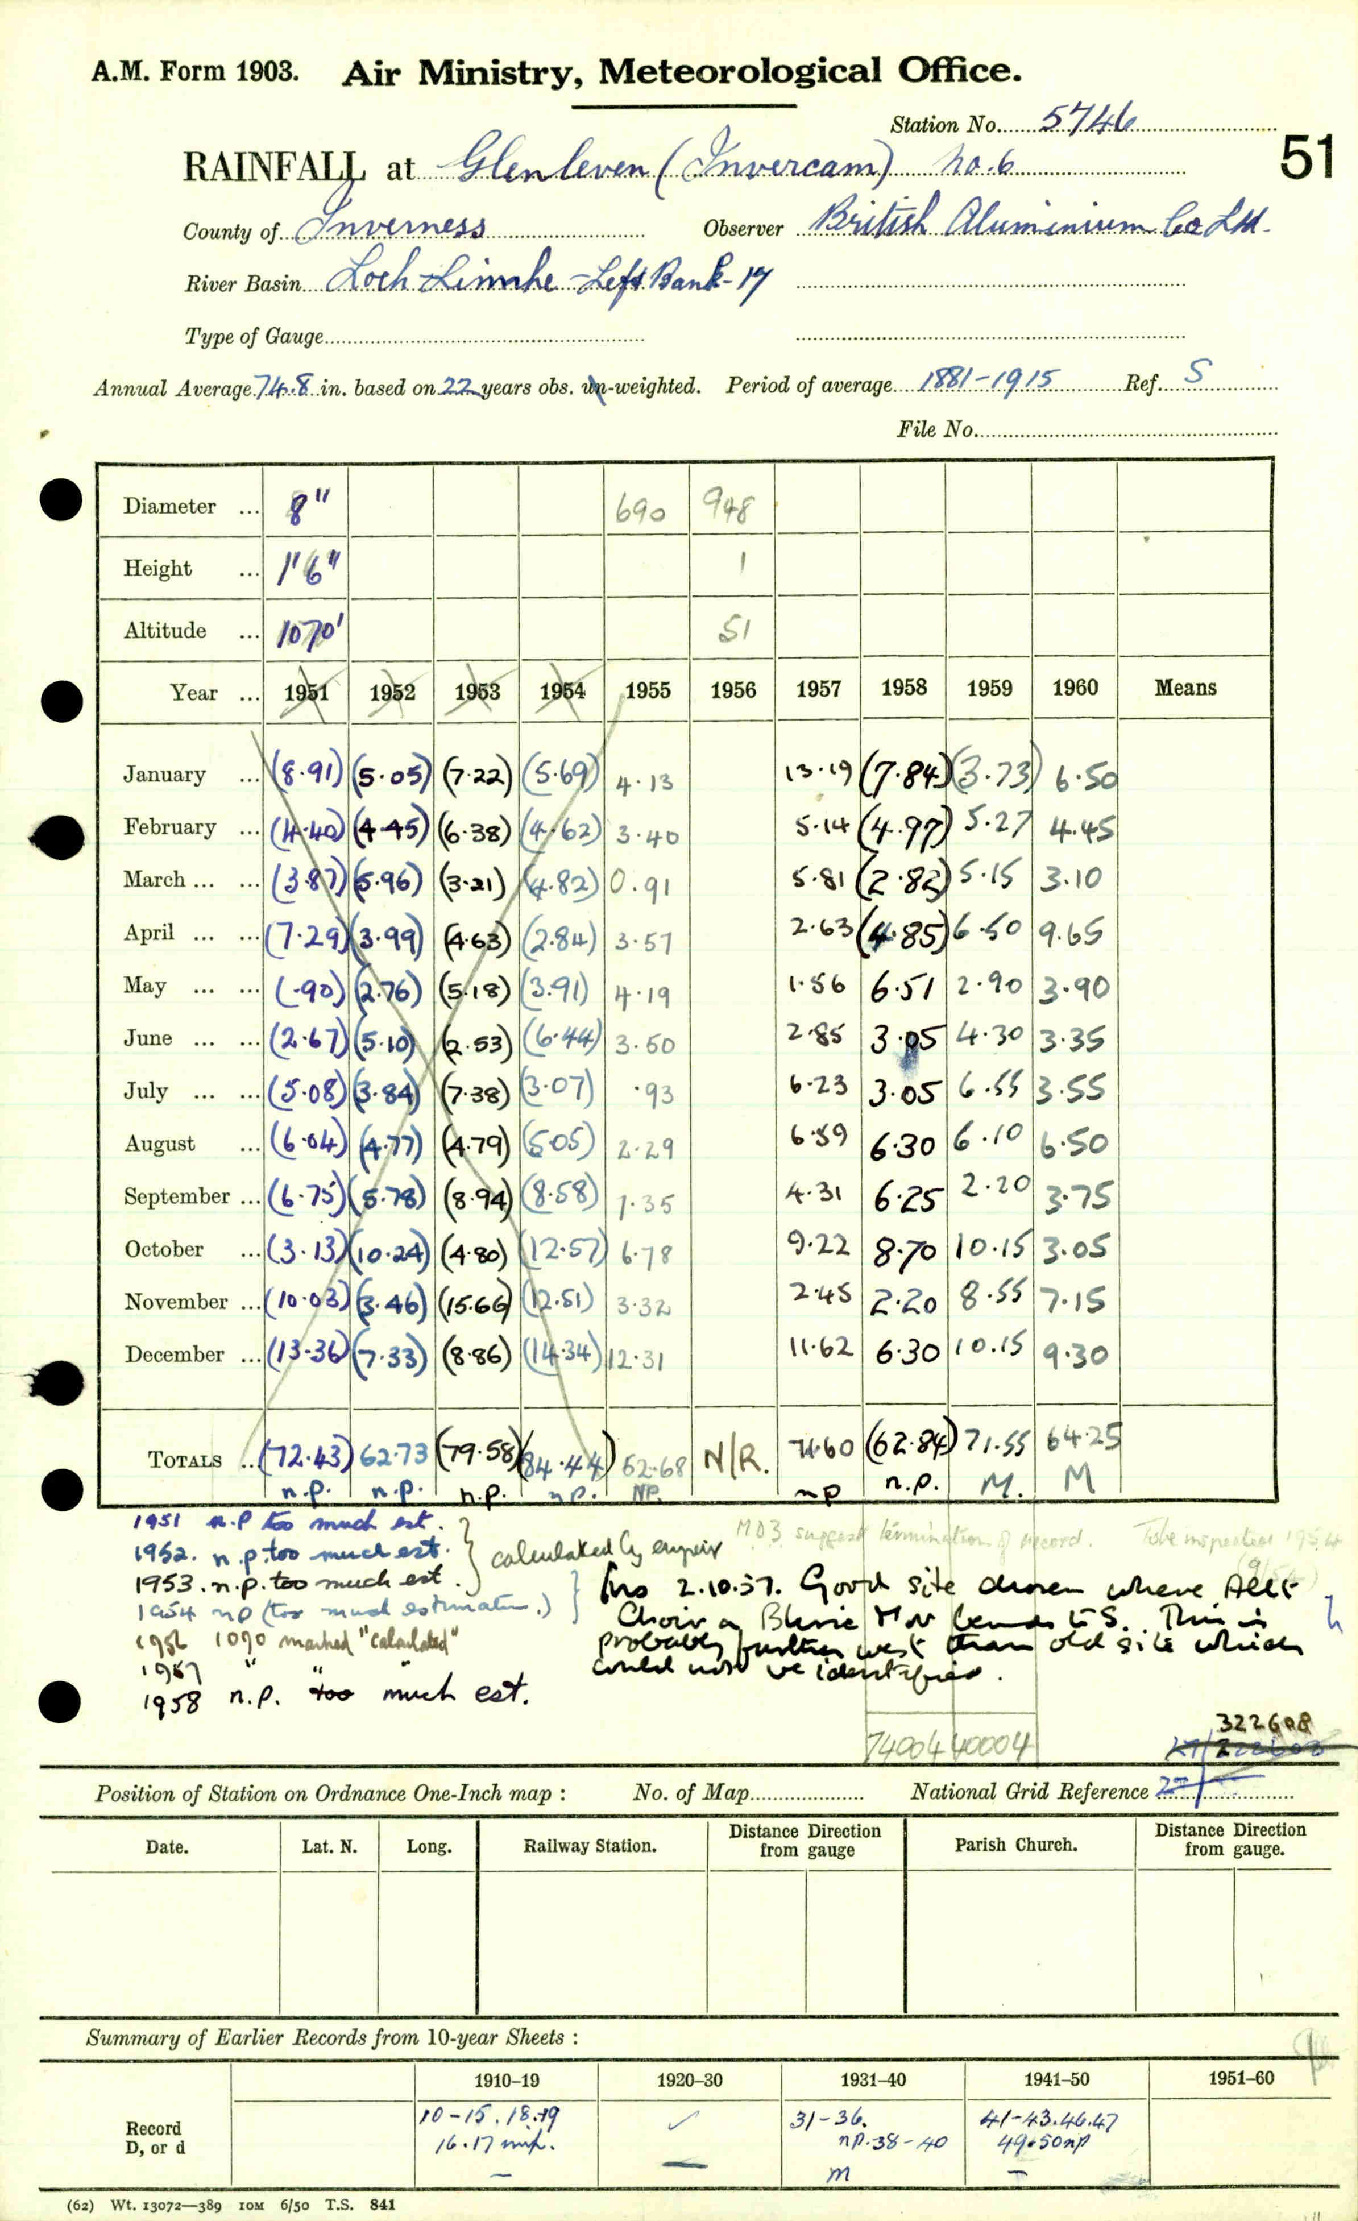 A.M. Form 1903. Air Ministry, Meteorological Office.
Station No. 5746
51
RAINFALL at Glenleven (Invercam) No. 6
County of Inverness Observer British Aluminium Co Ltd.
River Basin Loch Linnhe - Left Bank - 17
Type of Gauge
Annual Average 74.8 in. based on 22 years obs. un-weighted. Period of average 1881-1915 Ref. S
File No.
Diameter ... 8" 690 948
Height ... 1'6" 1
Altitude ... 1070' 51
Year ... 1951 1952 1953 1954 1955 1956 1957 1958 1959 1960 Means
January ... (8.91) (5.05) (7.22) (5.69) 4.13 13.19 (7.84) (3.73) 6.50
February ... (4.40) (4.45) (6.38) (4.62) 3.40 5.14 (4.97) 5.27 4.45
March ... ... (3.87) (5.96) (3.21) (4.82) 0.91 5.81 (2.82) 5.15 3.10
April ... ... (7.29) (3.99) (4.63) (2.84) 3.57 2.63 (4.85) 6.50 9.65
May ... ... (.90) (2.76) (5.18) (3.91) 4.19 1.56 6.51 2.90 3.90
June ... ... (2.67) (5.10) (2.53) (6.44) 3.50 2.85 3.05 4.30 3.35
July ... ... (5.08) (3.84) (7.38) (3.07) .93 6.23 3.05 6.55 3.55
August ... (6.04) (4.77) (4.79) (5.05) 2.29 6.59 6.30 6.10 6.50
September ... (6.75) (5.78) (8.94) (8.58) 1.35 4.31 6.25 2.20 3.75
October ... (3.13) (10.24) (4.80) (12.57) 6.78 9.22 8.70 10.15 3.05
November ... (10.03) (3.46) (15.66) (12.51) 3.32 2.45 2.20 8.55 7.15
December ... (13.36) (7.33) (8.86) (14.34) 12.31 11.62 6.30 10.15 9.30
TOTALS .. (72.43) 62.73 (79.58) (84.44) 52.68 N/R. 71.60 (62.84) 71.55 64.25
n.p. n.p. n.p. n.p. NP. np n.p. M. M
1951 n.p too much est.
1952. n.p. too much est. calculated by
1953. n.p. too much est.
1954 np (too much estimation.)
1956 1090 marked "calculated"
1957 " " "
1958 n.p. too much est.
M.O.3 suggest termination of record. To be inspected 1954
(9/54)
Ins 2.10.57. Good site chosen where Allt
Choir a Bhric Mor bends to S. This is
probably further west than old site which
could not be identified.
74004 40004
322608
27/228608
27/
Position of Station on Ordnance One-Inch map : No. of Map National Grid Reference
Date. Lat. N. Long. Railway Station. Distance Direction from gauge Parish Church. Distance Direction from gauge.
Summary of Earlier Records from 10-year Sheets :
1910–19 1920–30 1931–40 1941–50 1951–60
Record
D, or d
10-15. 18.19
16.17 inf.
–
✓
–
31-36.
np. 38-40
m
41-43.46.47
49.50 np
–
(62) Wt. 13072—389 10M 6/50 T.S. 841